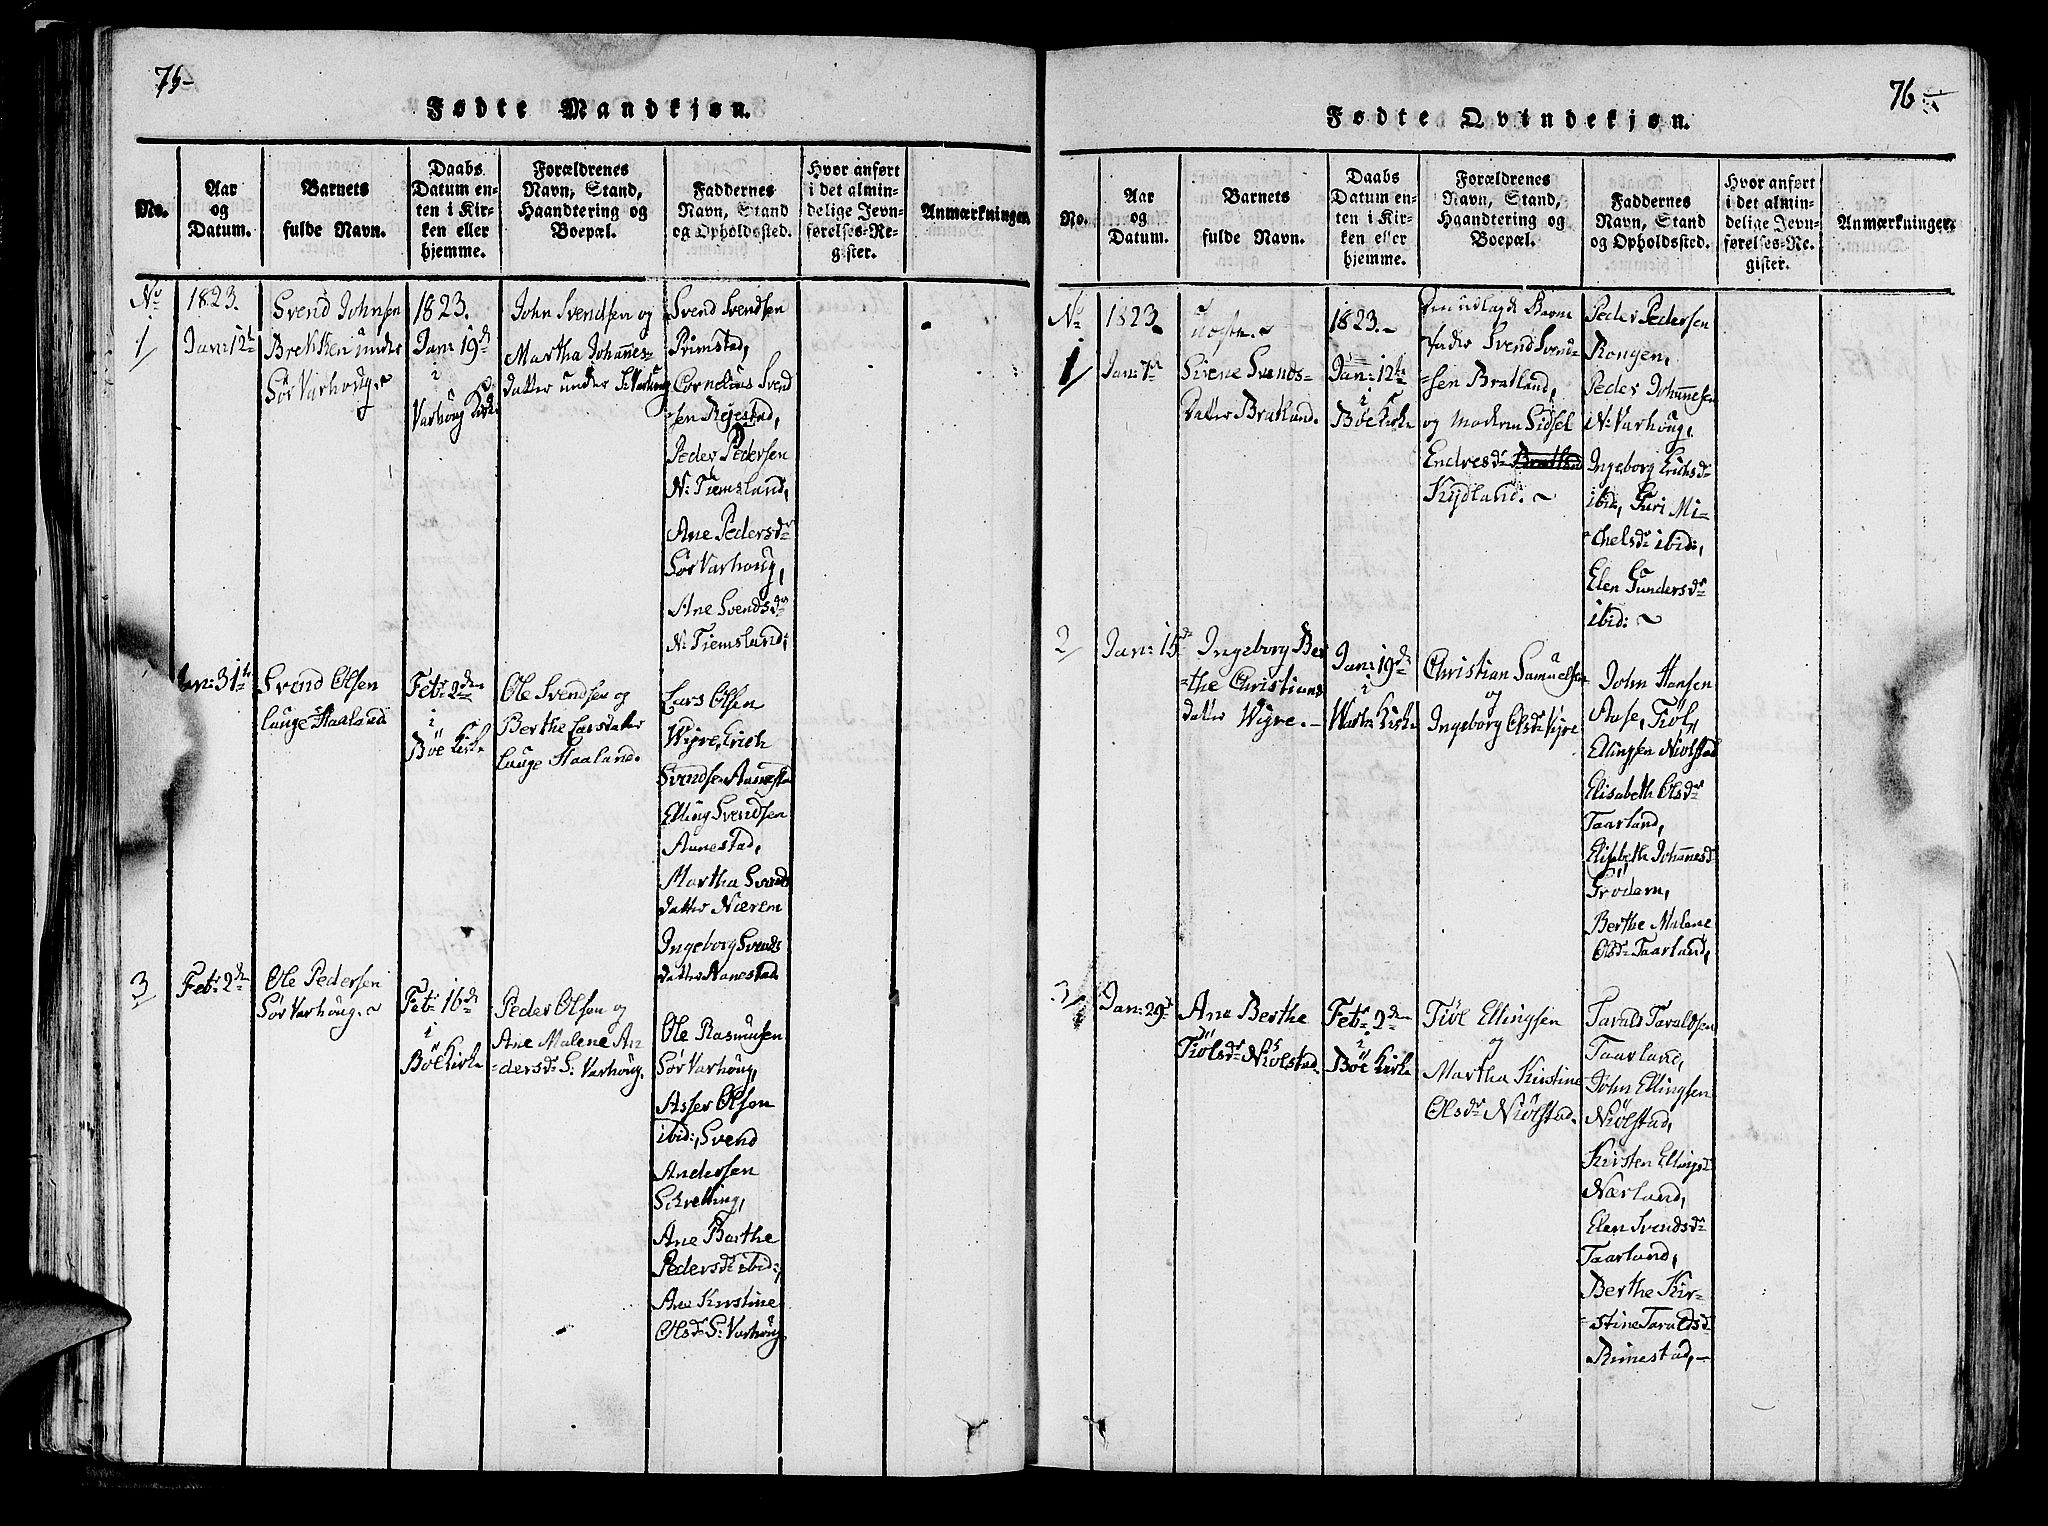 75
Fødte Mandkjøn.
No.
Aar
og
Datum.
Barnets
fulde Navn.
Daabs
Datum en-
ten i Kir-
ken eller
hjemme.
Forældrenes
Navn, Stand,
Haandtering og
Boepæl.
Faddernes
Navn, Stand
og Opholdssted.
Hvor anført
i det almin-
delige Jevn-
førelses-Re-
gister.
Anmærkninger.
No
1
1823.
Jan: 12t
Svend Johnsen
Brekken under
Sør Varhoug.
1823.
Jan: 19d
i
Varhoug Kirke
John Svendsen og
Martha Johannes-
datter under S: Varhoug
Svend Svendsen
Primstad,
Cornelius Svend
=sen Rejestad,
Peder Pedersen
N: Tiemsland,
Ane Pedersdr
Sør Varhoug,
Ane Svendsdr
N: Tiemsland;
Jan: 31te
Svend Olsen
Lauge Haaland
Feb: 2den
i
Böe Kirke
Ole Svendsen og
Berthe Larsdatter
Lauge Haaland.
Lars Olsen
Wigre, Erich
Svendsen Aunesta
Elling Svendsen
Aunestad,
Martha Svends
datter Nærem
Ingeborg Svends
datter Aanestad
3
Feb: 2den
Ole Pedersen
Sør Varhoug.
Feb: 16de
i
Böe Kirke
Peder Olsen og
Ane Malene An
=dersdr S: Varhoug.
Ole Rasmusen
Sør Varhoug,
Asser Olsen
ibid:, Svend
Andersen
Skretting,
Ane Barthe
Pedersdr ibid:,
Ane Kirstine
Olsdr S: Varhoug
76
Fødte Qvindekjøn.
No.
Aar
og
Datum.
Barnets
fulde Navn.
Daabs
Datum en-
ten i Kir-
ken eller
hjemme.
Forældrenes
Navn, Stand,
Haandtering og
Boepæl.
Faddernes
Navn, Stand
og Opholdssted.
Hvor anført
i det almin-
delige Jevn-
førelses-Re-
gister.
Anmærkninger.
No
1
1823.
Jan: 7de
uægte.
Sirene Svends-
datter Bratland.
1823.
Jan: 12te
i
Böe Kirke
Den udlagde Barne
fader Svend Svend
=sen Bratland,
og Moderen Sidsel
Endresdr Bratland
Kydland.
Peder Pedersen
Rongen,
Peder Johannesen
N: Varhoug,
Ingeborg Erichsdr
ibid, Guri Mi-
=chelsdr ibid:,
Elen Gundersdr
ibid:
2
Jan: 15de
Ingeborg Ber
=the Christians
datter Wigre.
Jan: 19de
i
Warh: Kirke
Christian Samuelsen
og
Ingeborg Olsdr Vigre
John Hansen
Aase, Tiöl
Ellingsen Niolstad
Elisabeth Olsdr
Taarland,
Elisabeth Johannesd
Grödem,
Berthe Malene
Olsdr Taarland,
3
Jan: 29de
Ane Berthe
Tiölsdr Niölstad.
Feb: 2den
i
Böe Kirke
Tiöl Ellingsen
og
Martha Kirstine
Olsdr Niölstad.
Tarald Taraldsen
Taarland,
John Ellingsen
Niölstad,
Kirsten Ellingsd
Nærland,
Elen Svendsdr
Taarland,
Berthe Kir-
=stine Taraldsd
Rimestad,